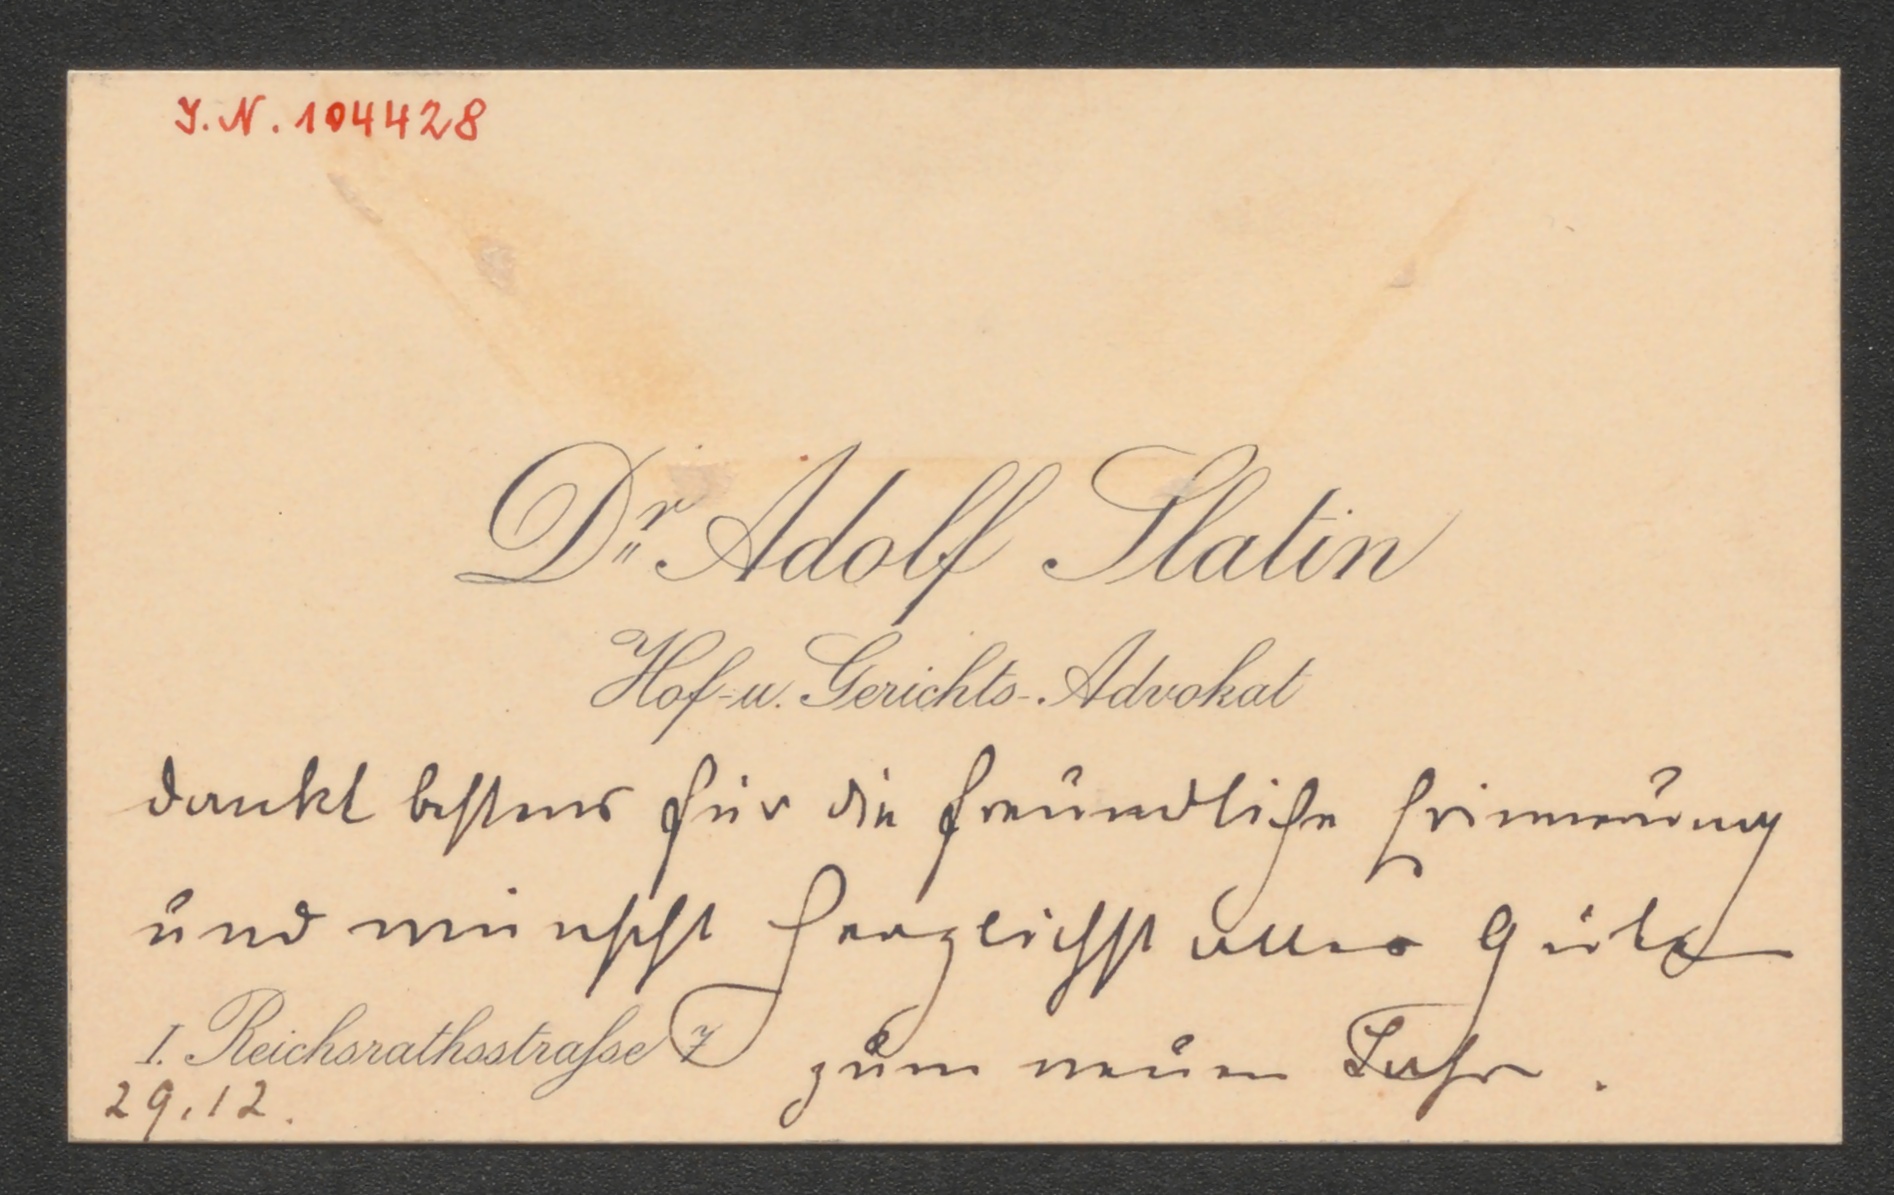 J. N. 104428
Dr. Adolf Slatin
Hof- u. Gerichts-Advokat
dankt bestens für die freundliche Erinnerung
und wünscht herzlichst alles Gute
I. Reichsrathsstraſse 7
zum neuen Jahr.
29.12.